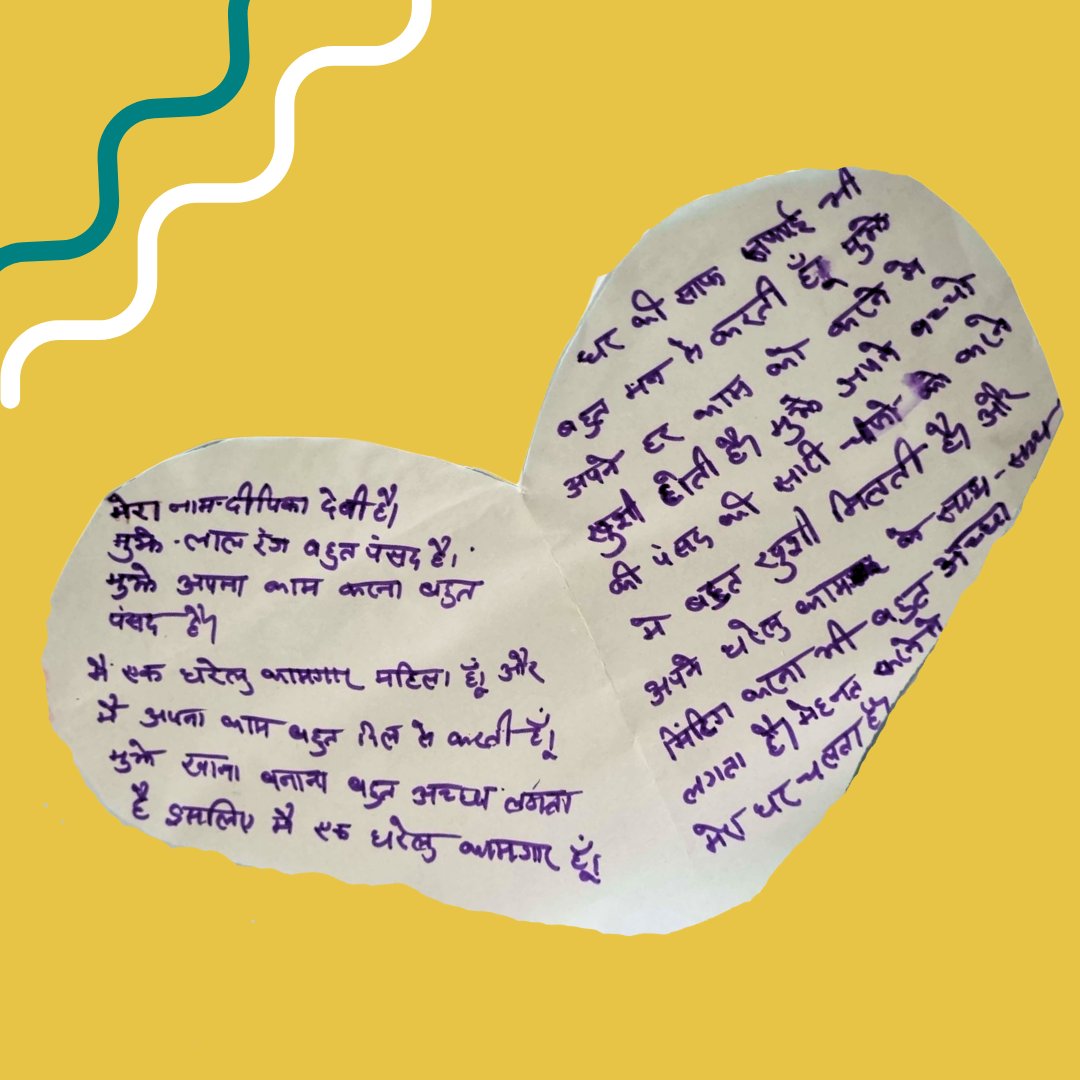 मेरा नाम-दीपिका देवी है।
मुझे लाल रंग बहुत पंसद है।
मुझे अपना काम करना बहुत
पंसद है।
मैं एक घरेलु कामगार महिला हूं। और
मैं अपना काम बहुत दिल से करती हूं।
मुझे खाना बनाना बहुत अच्छा लगता
है इसलिए मैं एक घरेलु कामगार हूं।
घर की साफ सफाई भी
बहुत मन से करती हूँ। मुझे
अपने हर काम को करने में
खुशी होती है। मुझे अपने बच्चो
की पंसद की सारी चीजे करने
में बहुत खुशी मिलती है। और
अपने घरेलु काम के साथ-साथ
मिंटिग करना भी बहुत अच्छा
लगता है। मेहनत करने
मेरा घर चलता है।